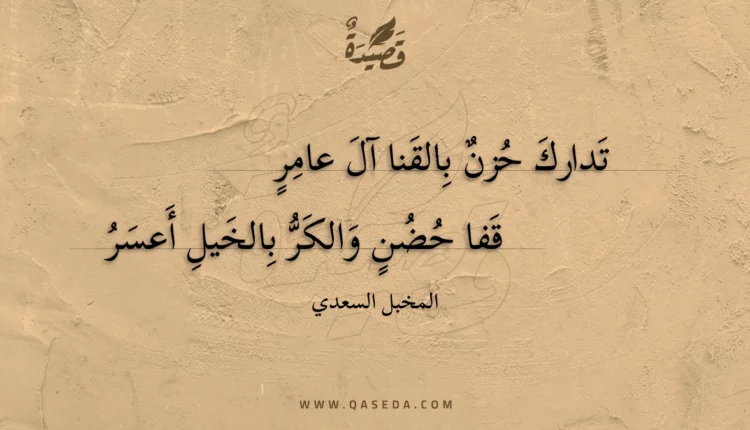 قَصِيدَةٌ
تَدارکَ حُزنٌ بِالقَنا آلَ عامِرٍ
قَفا حُضُنٍ وَالكَرُّ بِالخَيلِ أَعسَرُ
المخبل السعدي
WWW.QASEDA.COM